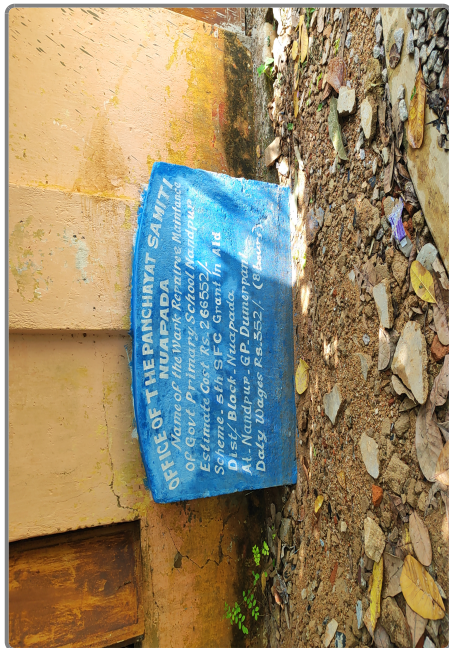 OFFICE OF THE PANCHAYAT SAMITI
NUAPADA
Name of the Work Repair & Maintance
of Govt Primary School Nandpur
Estimate Cost Rs. 266552/-
Scheme - 5th SFC Grant in Aid
Dist/ Block Nuapada
At. Nandpur - GP. Dumerpani
Daly Wages Rs. 352/- (8 hours)